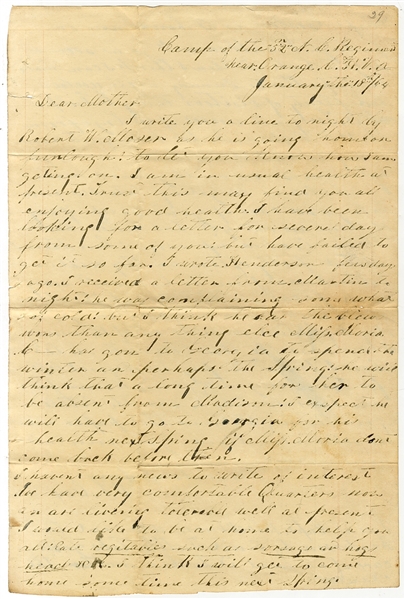 29
Camp of the 52 N. C. Regiment
near Orange C. H. Va
January the 18th/64
Dear Mother
I write you a line to night by
Robert W. Moser as he is going home on
furlough to let you know how I am
going on. I am in usual health at
present. Trust this may find you all
enjoying good health. I have been
looking for a letter for several day
from some of you but have failed to
get it so far. I wrote Henderson Tuesday
ago. I received a letter from Martin to
night. he was complaining some what
of cold but I think he has the
more than any thing else Miss Maria
has gon to Georgia to spend the
winter an perhaps the Spring. he will
think that a long time for her to
be absent from Madison. I expect he
will have to go to Georgia for his
health next Spring if Miss Maria dont
come back before then.
I havent any news to write of interest
We have very comfortable Quarters now
an are living tolerod well at present
I would like to be at home to help you
vegitables such as sorsage an hogs
head &C. I think I will get to come
home some time this next Spring.